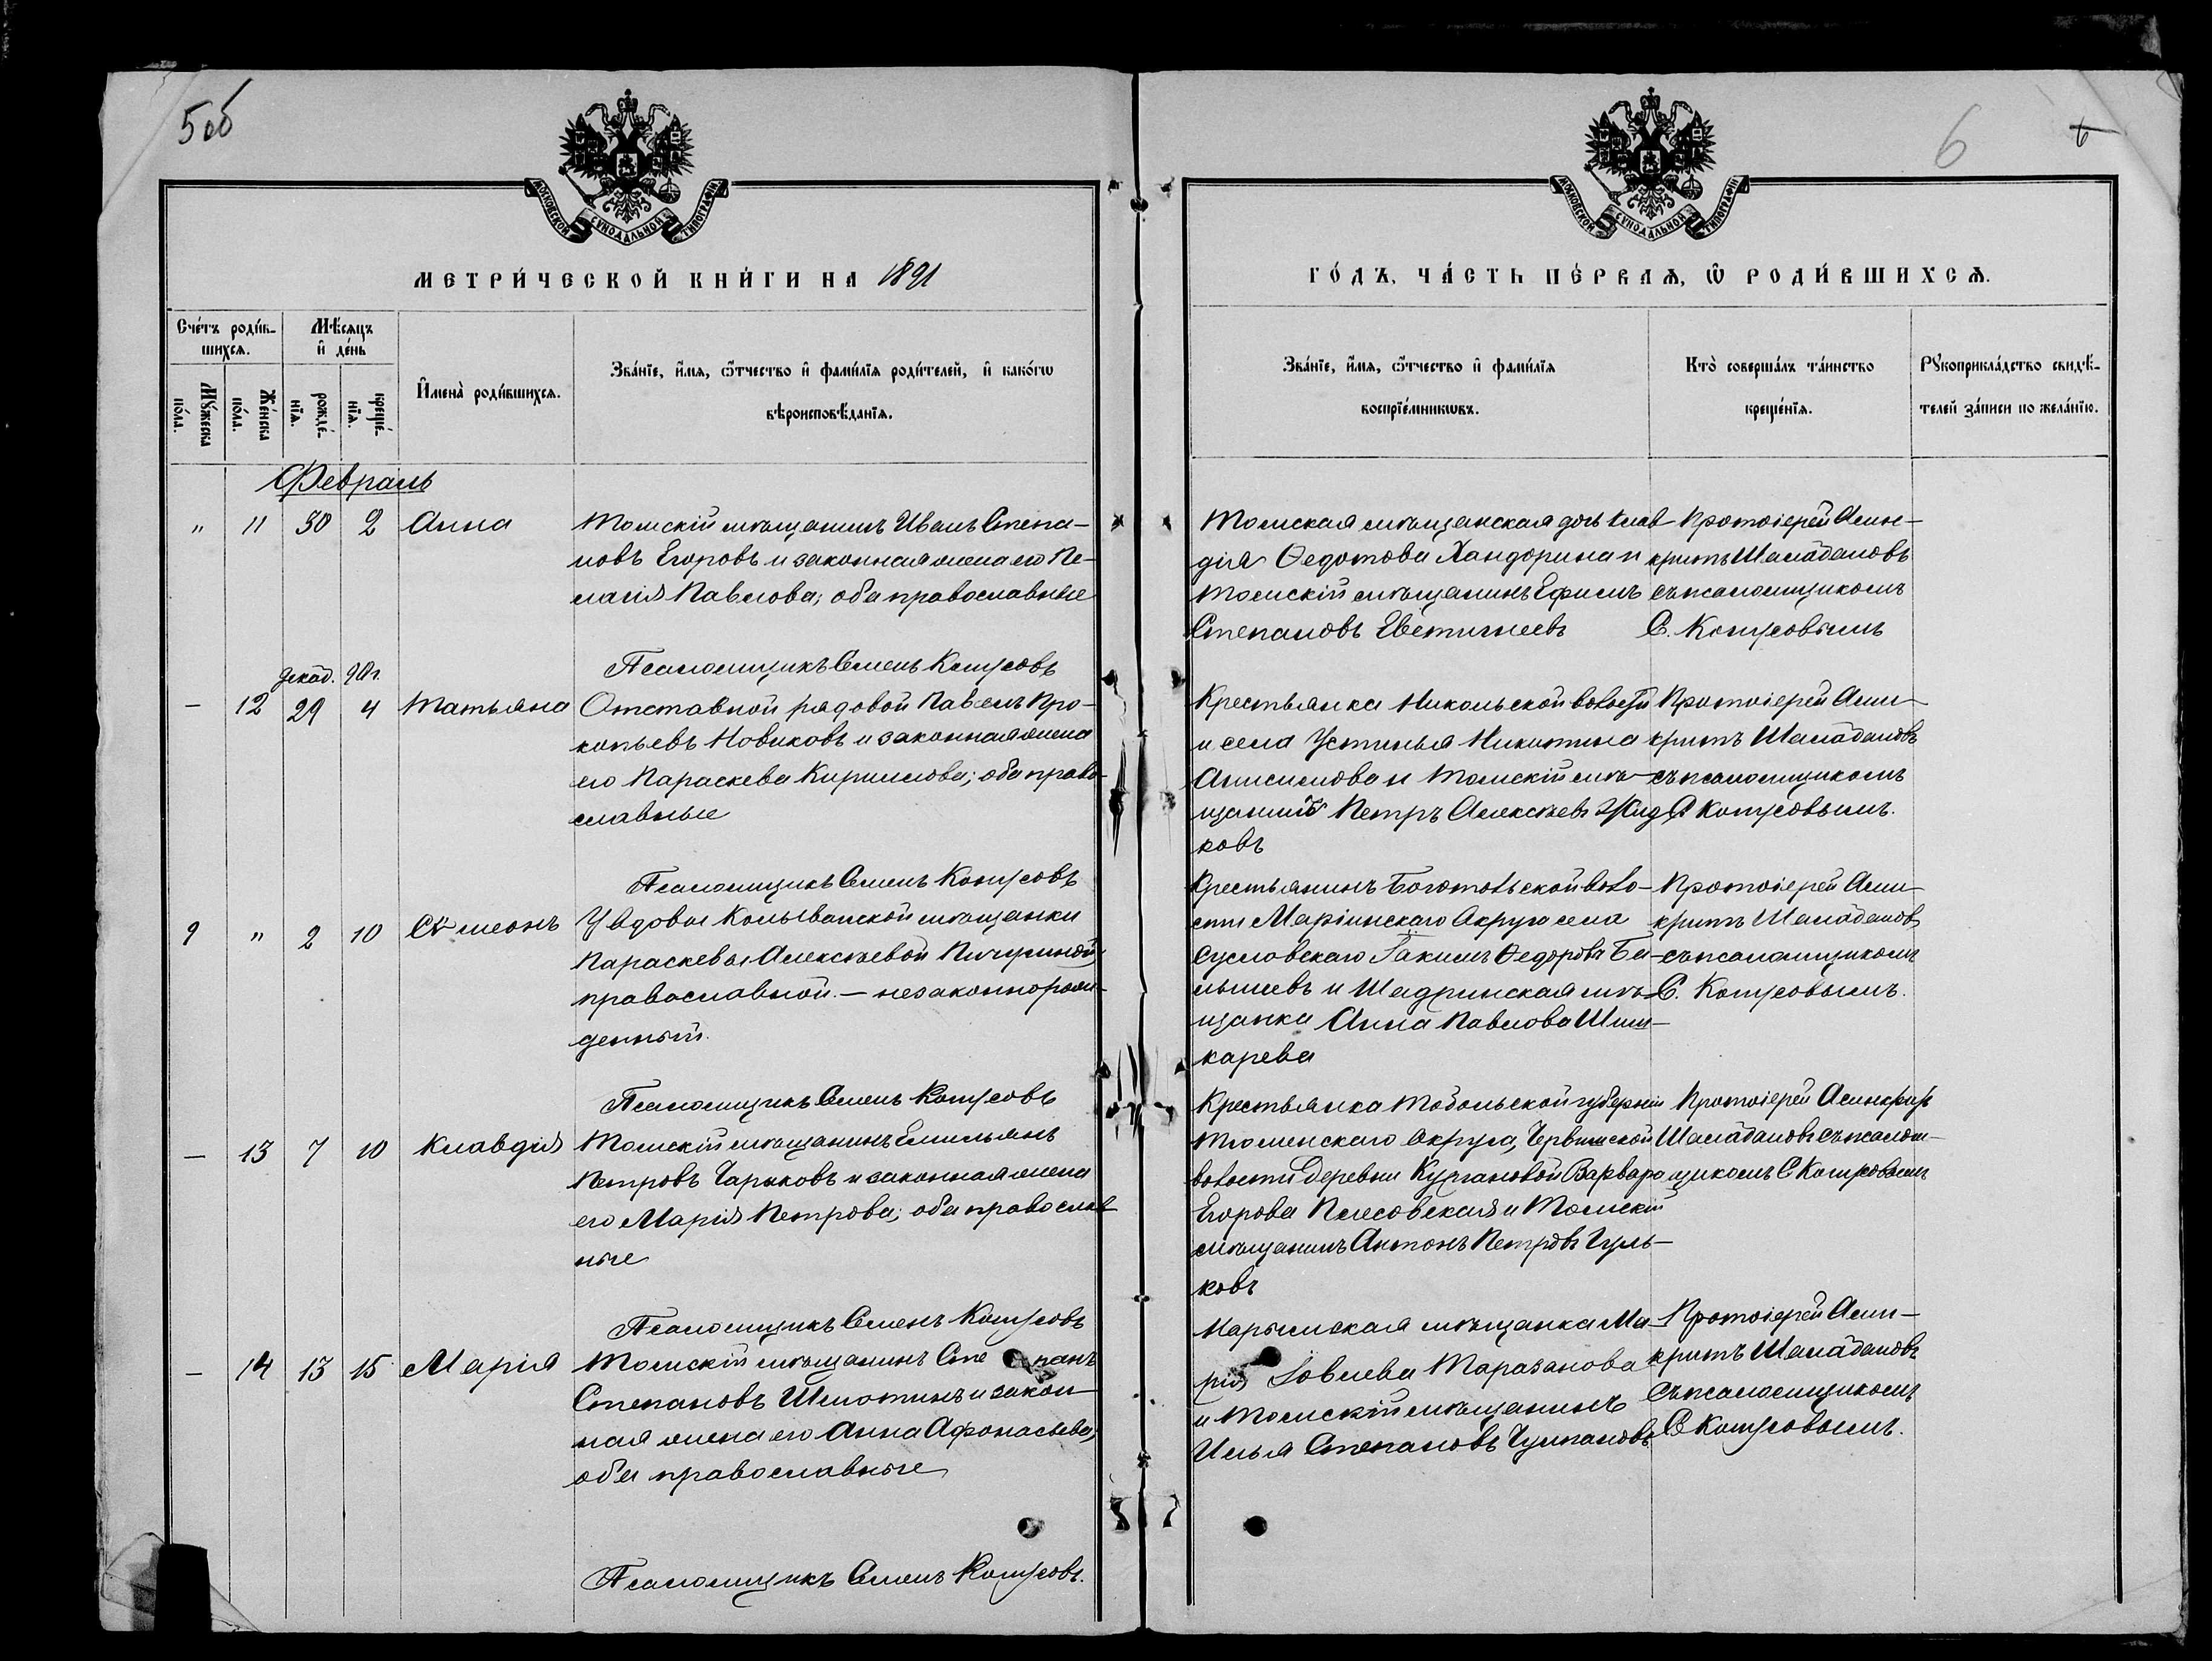 5об
6
6
МОСКОВСКОЙ СѴНОДАЛЬНОЙ ТИПОГРАФІИ
МОСКОВСКОЙ СѴНОДАЛЬНОЙ ТИПОГРАФІИ
МЕТРИ́ЧЕСКОЙ КНИ́ГИ НА 1891
ГО́ДЪ, ЧА́СТЬ ПЕ́РВАѦ, Ѽ РОДИ́ВШИХСѦ.
Сче́тъ роди́в-
шихсѧ.
Мѣ́сѧцъ
и҆ де́нь
Мꙋ́жеска
по́ла.
Же́нска
по́ла.
рожде́-
нїѧ.
креще́-
нїѧ.
И҆мена̀ роди́вшихсѧ.
Зва́нїе, и҆́мѧ, ѻ҆́тчество и҆ фами́лїѧ роди́телей, и҆ како́гѡ
вѣроисповѣ́данїѧ.
Зва́нїе, и҆́мѧ, ѻ҆́тчество и҆ фами́лїѧ
воспрїе́мникѡвъ.
Кто̀ соверша́лъ та́инство
креще́нїѧ.
Рꙋкоприкла́дство свидѣ́-
телей за́писи по жела́нїю.
Февраль
" 11 30 2 Анна
Томскій мѣщанинъ Иванъ Степа-
новъ Егоровъ и законная жена его Пе-
лагія Павлова; оба православные
Томская мѣщанская дочь Клав
дія Ѳедотова Хандорина и
Томскій мѣщанинъ Ефимъ
Степановъ Евстигнеевъ
Протоіерей Асин-
критъ Шалабановъ
съ псаломщикомъ
С. Колусовымъ
Псаломщикъ Семенъ Колусовъ
декаб. 90 г.
- 12 29 4 Татьяна
Отставной рядовой Павелъ Про-
копьевъ Новиковъ и законная жена
его Параскева Кириллова; оба право-
славные
Крестьянка Никольской волости
и села Устинья Никитина
Анисимова и Томскій мѣ-
щанинъ Петръ Алексѣевъ Жид
ковъ
Протоіерей Асин-
критъ Шалабановъ
съ псаломщикомъ
С. Колусовымъ.
Псаломщикъ Семенъ Колусовъ
9 " 2 10 Сѵмеонъ
У вдовы Колыванской мѣщанки
Параскевы Алексѣевой Пичугиной,
православной. — незаконнорож-
денный.
Крестьянинъ Боготольской воло-
сти Маріинскаго Округа села
Сусловскаго Іакимъ Ѳедоровъ Бе-
лышевъ и Шадринская мѣ-
щанка Анна Павлова Шиш-
карева
Протоіерей Асин-
критъ Шалабановъ
съ псаломщикомъ
С. Колусовымъ.
Псаломщикъ Семенъ Колусовъ
— 13 7 10 Клавдія
Томскій мѣщанинъ Емильянъ
Петровъ Чарыковъ и законная жена
его Марія Петрова; оба православ
ные
Крестьянка Тобольской губерніи
Тюменскаго округа, Червишской
волости деревни Кургановой Варвара
Егорова Плесовская и Томскій
мѣщанинъ Антонъ Петровъ Гуль-
ковъ
Протоіерей Асинкритъ
Шалабановъ съ псалом-
щикомъ С Колусовымъ
Псаломщикъ Семенъ Колусовъ
— 14 13 15 Марія
Томскій мѣщанинъ Сте панъ
Степановъ Шмотинъ и закон-
ная жена его Анна Афонасьева,
оба православные
Нарымская мѣщанка Ма-
рія Іовлева Таразанова
и Томскій мѣщанинъ
Илья Степановъ Чулпановъ
Протоіерей Асин-
критъ Шалабановъ
съ псаломщикомъ
С Колусовымъ.
Псаломщикъ Семенъ Колусовъ.